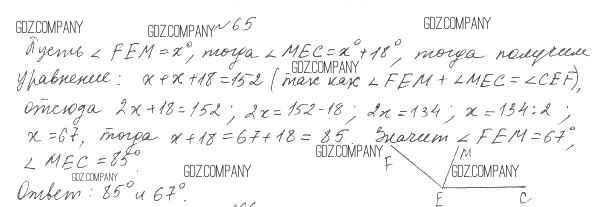 GDZ.COMPANY GDZ.COMPANY №65 GDZ.COMPANY
Пусть ∠ FEM = x°, тогда ∠ MEC = x° + 18°, тогда получим
GDZ.COMPANY
уравнение: x + x + 18 = 152 (так как ∠ FEM + ∠ MEC = ∠ CEF),
отсюда 2x + 18 = 152; 2x = 152 - 18; 2x = 134; x = 134 : 2;
x = 67, тогда x + 18 = 67 + 18 = 85 Значит ∠ FEM = 67°,
∠ MEC = 85°.
GDZ.COMPANY GDZ.COMPANY F M
GDZ.COMPANY GDZ.COMPANY
Ответ: 85° и 67°.
E C